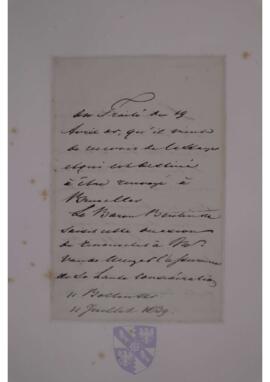 du Traité du 19
Avril dr, qu'il vient
de recevoir de la Haye
et qui est destiné
à être renvoyé à
Bruxelles
Le Baron Bentinck
saisit cette occasion
de renouveler à Mr
Van de Weyer l'assurance
de Sa haute Considération
11 Juillet 1839.